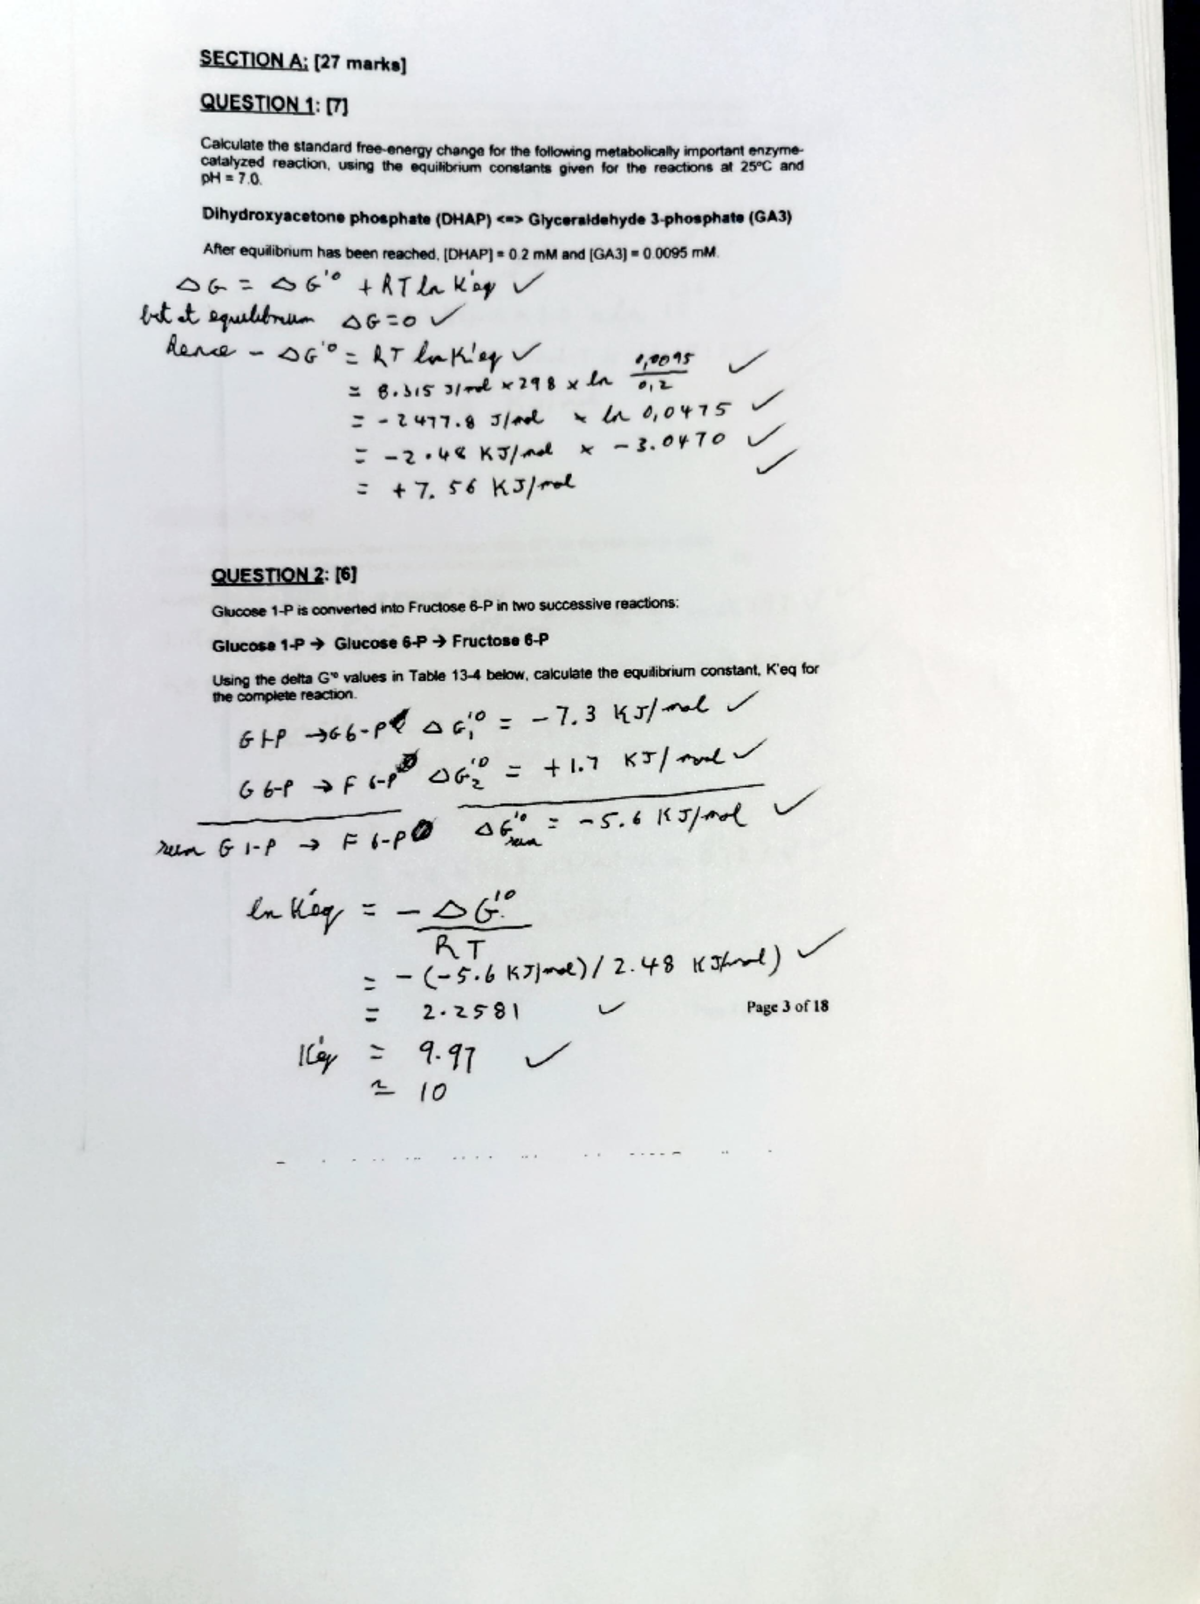 SECTION A: [27 marks]
QUESTION 1: [7]
Calculate the standard free-energy change for the following metabolically important enzyme-
catalyzed reaction, using the equilibrium constants given for the reactions at 25°C and
pH = 7.0.
Dihydroxyacetone phosphate (DHAP) <=> Glyceraldehyde 3-phosphate (GA3)
After equilibrium has been reached, [DHAP] = 0.2 mM and [GA3] = 0.0095 mM.
ΔG = ΔG'° + RT ln K'eq ✓
but at equilibrium ΔG = 0 ✓
Hence - ΔG'° = RT ln K'eq ✓
= 8.315 J/mol × 298 × ln 0,0095/0,2 ✓
= -2477.8 J/mol × ln 0,0475 ✓
= -2.48 KJ/mol × -3.0470 ✓
= +7.56 KJ/mol ✓
QUESTION 2: [6]
Glucose 1-P is converted into Fructose 6-P in two successive reactions:
Glucose 1-P → Glucose 6-P → Fructose 6-P
Using the delta G'° values in Table 13-4 below, calculate the equilibrium constant, K'eq for
the complete reaction.
G1-P → G6-P ΔG₁'° = -7.3 KJ/mol ✓
G 6-P → F 6-P ΔG₂'° = +1.7 KJ/mol ✓
sum G 1-P → F 6-P ΔG'°sum = -5.6 KJ/mol ✓
ln K'eq = - ΔG'°/RT
= -(-5.6 KJ/mol)/2.48 KJ/mol) ✓
= 2.2581 ✓
Page 3 of 18
K'eq = 9.97 ✓
≃ 10